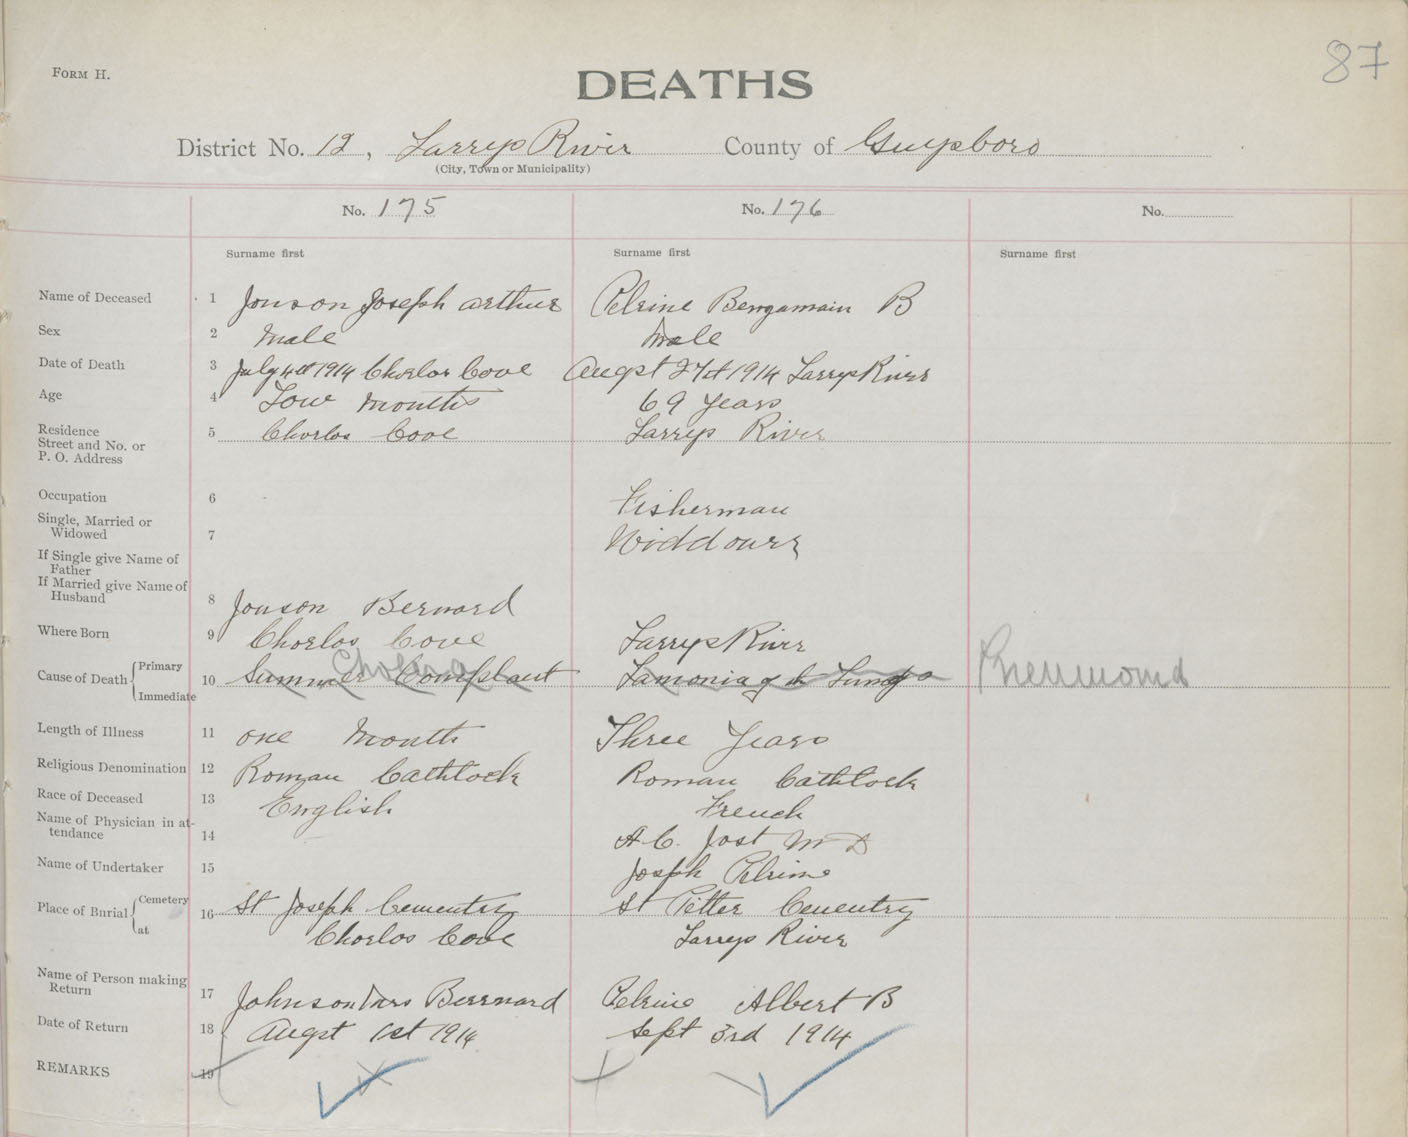 87
FORM H.
DEATHS
District No. 12, Larrys River County of Guysboro
(City, Town or Municipality)
No. 175 No. 176 No.
Surname first Surname first Surname first
Name of Deceased 1 Jonson Joseph Arthur Pelrine Bengamain B
Sex 2 Male Male
Date of Death 3 July 4th 1914 Chorlos Cove Augst 27st 1914 Larrys River
Age 4 Fow Months 69 Years
Residence
Street and No. or 5 Chorlos Cove Larrys River
P. O. Address
Occupation 6 Fisherman
Single, Married or
Widowed 7 Widdower
If Single give Name of
Father
If Married give Name of
Husband 8 Jonson Bernard
Where Born 9 Chorlos Cove Larrys River
Cause of Death { Primary Immediate 10 Summer Complant Cholera Lamonia of th Lungs Pneumonia
Length of Illness 11 one Month Three Years
Religious Denomination 12 Roman Cathlock Roman Cathlock
Race of Deceased 13 English French
Name of Physician in at-
tendance 14 A C. Jost M D
Name of Undertaker 15 Joseph Pelrine
Place of Burial { Cemetery at 16 St Joseph Cementry St Petter Cenentry
Chorlos Cove Larrys River
Name of Person making
Return 17 Johnson Mrs Berrnard Pelrine Albert B
Date of Return 18 Augst 1st 1914 Sept 3rd 1914
REMARKS 19